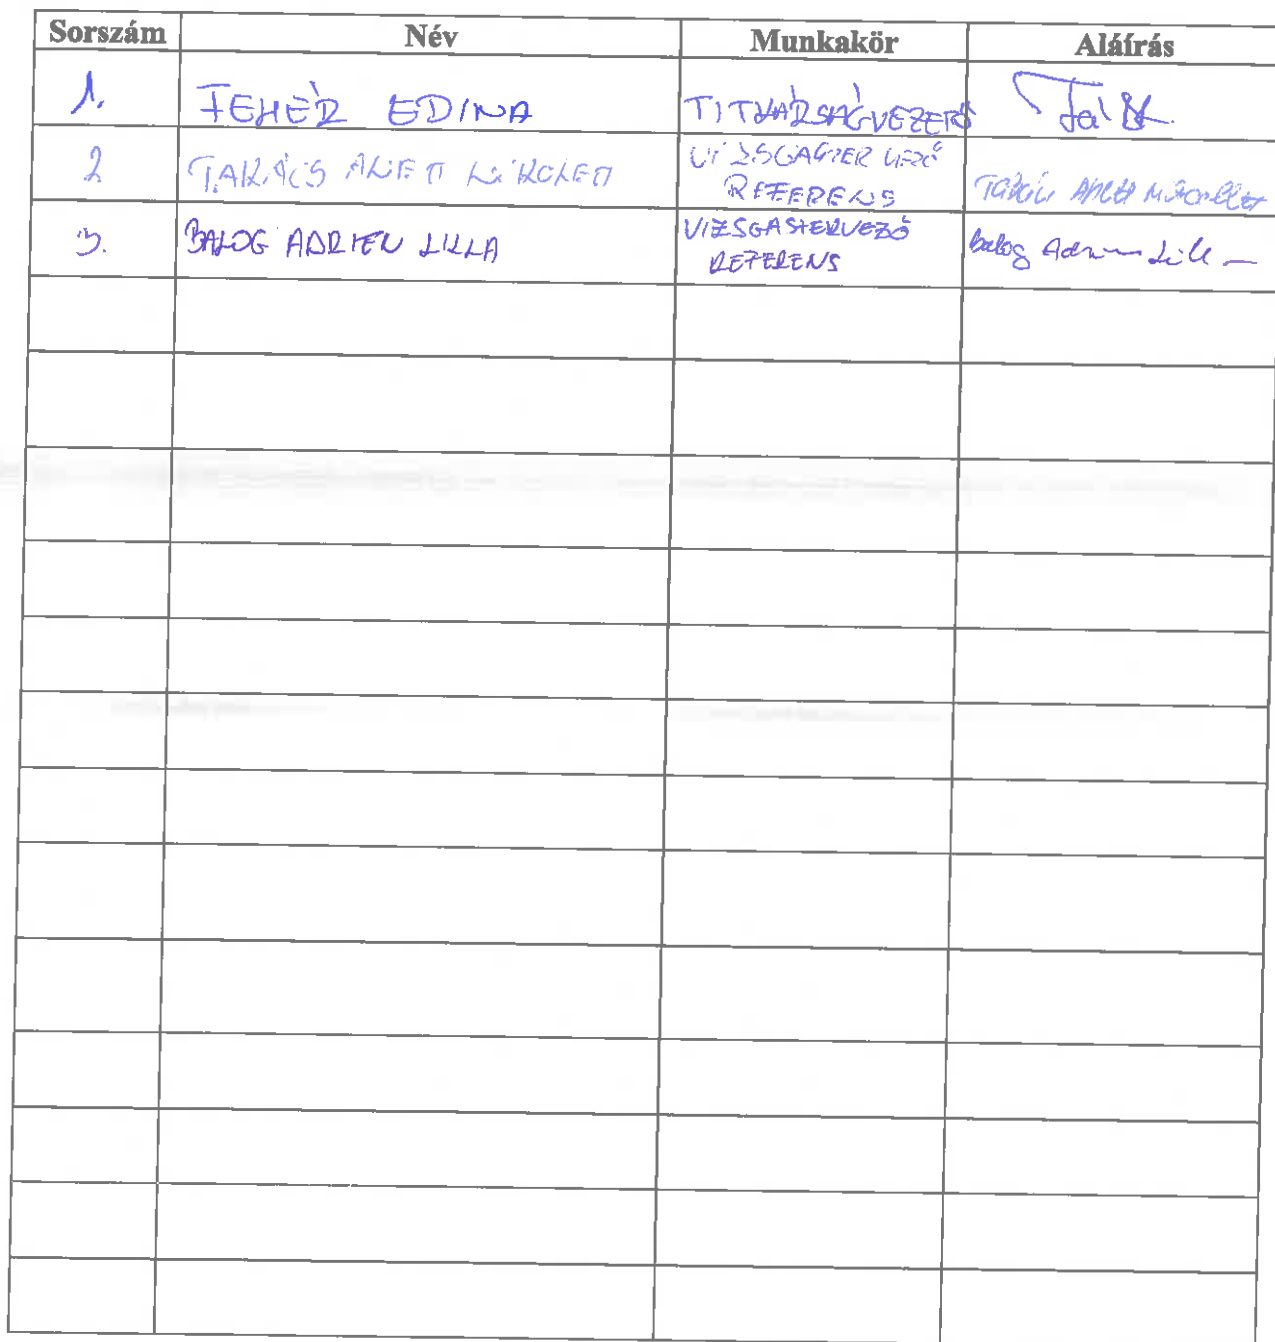 Sorszám Név Munkakör Aláírás
1. FEHÉR EDINA TITKÁRSÁGVEZETŐ
2 TAKÁCS ANETT NIKOLETT VIZSGASZERVEZŐ
REFERENS Takács Anett Nikolett
3. BALOG ADRIEN LILLA VIZSGASZERVEZŐ
REFERENS Balog Adrien Lilla